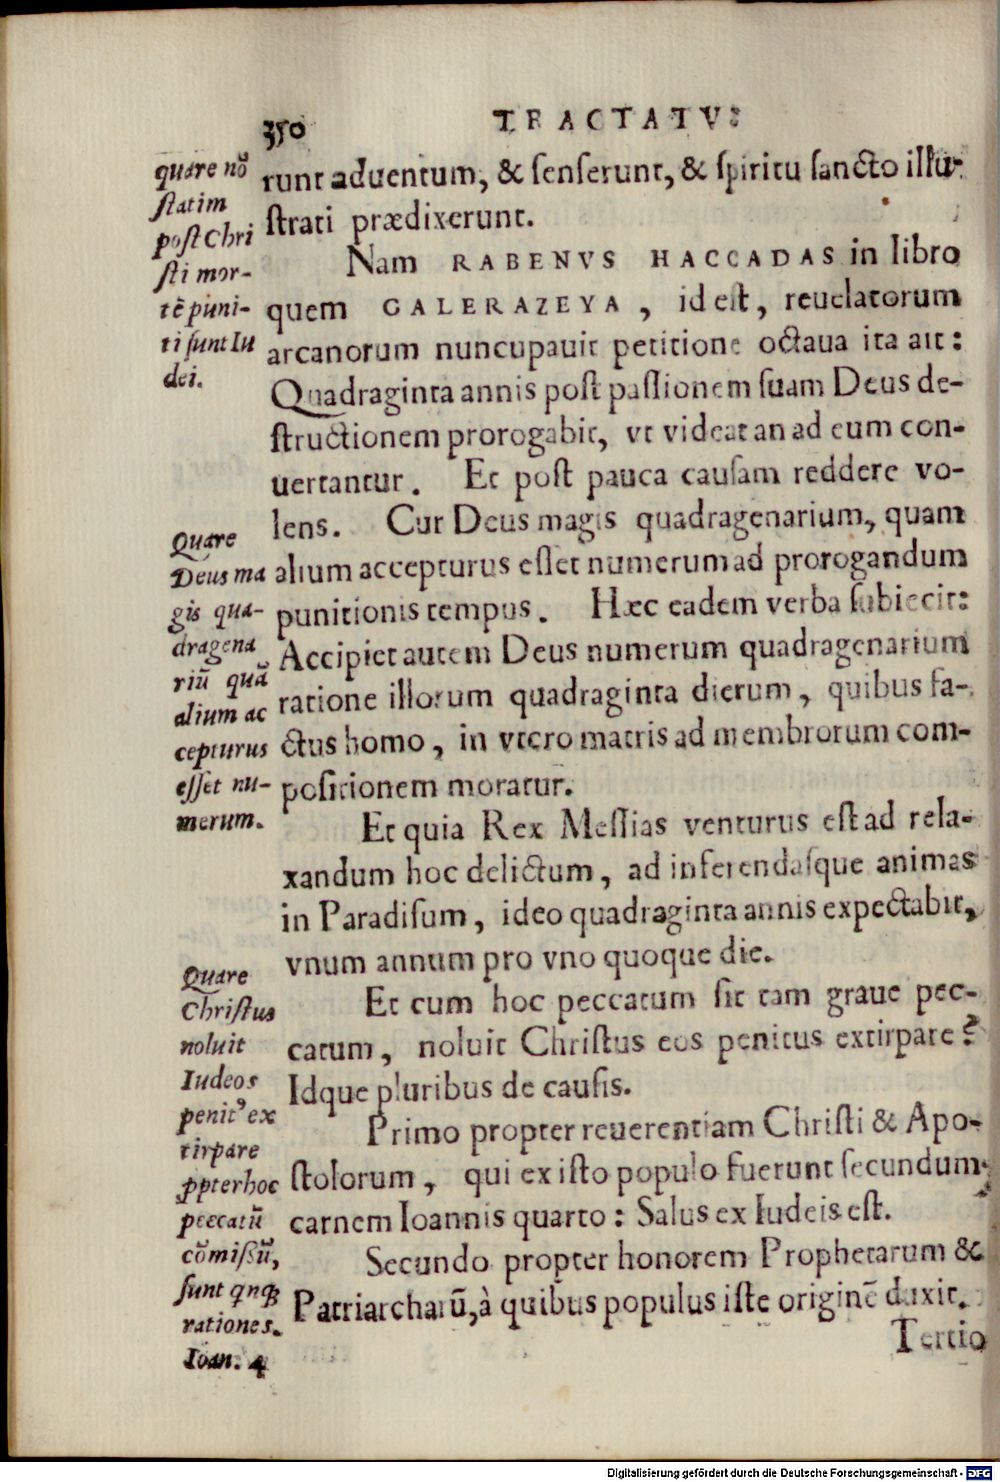 350
TRACTATVS
runt aduentum, & senserunt, & spiritu sancto illu-
strati prædixerunt.
Nam RABENVS HACCADAS in libro
quem GALERAZEYA, id est, reuelatorum
arcanorum nuncupauit petitione octaua ita ait:
Quadraginta annis post passionem suam Deus de-
structionem prorogabit, vt videat an ad eum con-
uertantur. Et post pauca causam reddere vo-
lens. Cur Deus magis quadragenarium, quam
alium accepturus esset numerum ad prorogandum
punitionis tempus. Hæc eadem verba subiecit:
Accipiet autem Deus numerum quadragenarium
ratione illorum quadraginta dierum, quibus fa-
ctus homo, in vtero matris ad membrorum com-
positionem moratur.
Et quia Rex Messias venturus est ad rela-
xandum hoc delictum, ad inferendasque animas
in Paradisum, ideo quadraginta annis expectabit,
vnum annum pro vno quoque die.
Et cum hoc peccatum sit tam graue pec-
catum, noluit Christus eos penitus extirpare?
Idque pluribus de causis.
Primo propter reuerentiam Christi & Apo-
stolorum, qui ex isto populo fuerunt secundum
carnem Ioannis quarto: Salus ex Iudeis est.
Secundo propter honorem Prophetarum &
Patriarcharū, à quibus populus iste originē duxit.
Tertio
quare nō
statim
post Chri
sti mor-
tē puni-
ti sunt Iu
dei.
Quare
Deus ma
gis qua-
dragena
riū quā
alium ac
cepturus
esset nu-
merum.
Quare
Christus
noluit
Iudeos
penitꝰ ex
tirpare
ꝓpter hoc
peccatū
cōmißū,
sunt qnqꝫ
rationes.
Ioan. 4
Digitalisierung gefördert durch die Deutsche Forschungsgemeinschaft - DFG